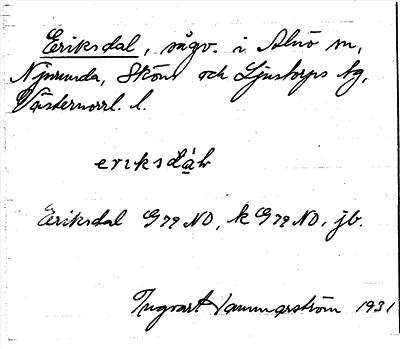 Eriksdal, sågv. i Alnö sn,
Njurunda, Sköns och Ljustorps tg,
Västernorrl. l.
eriksdàḷ
Eriksdal G 79 NO, k G 79 NO, jb.
Ingvart Hammarström 1931